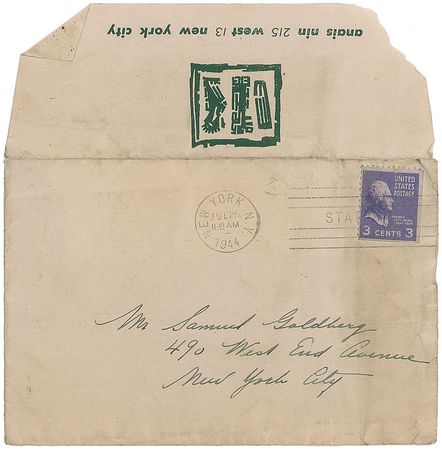 anais nin 215 west 13 new york city
NEW YORK, N.Y.
1944
UNITED
STATES
POSTAGE
3 CENTS 3
Mr Samuel Goldberg
490 West End Avenue
New York City